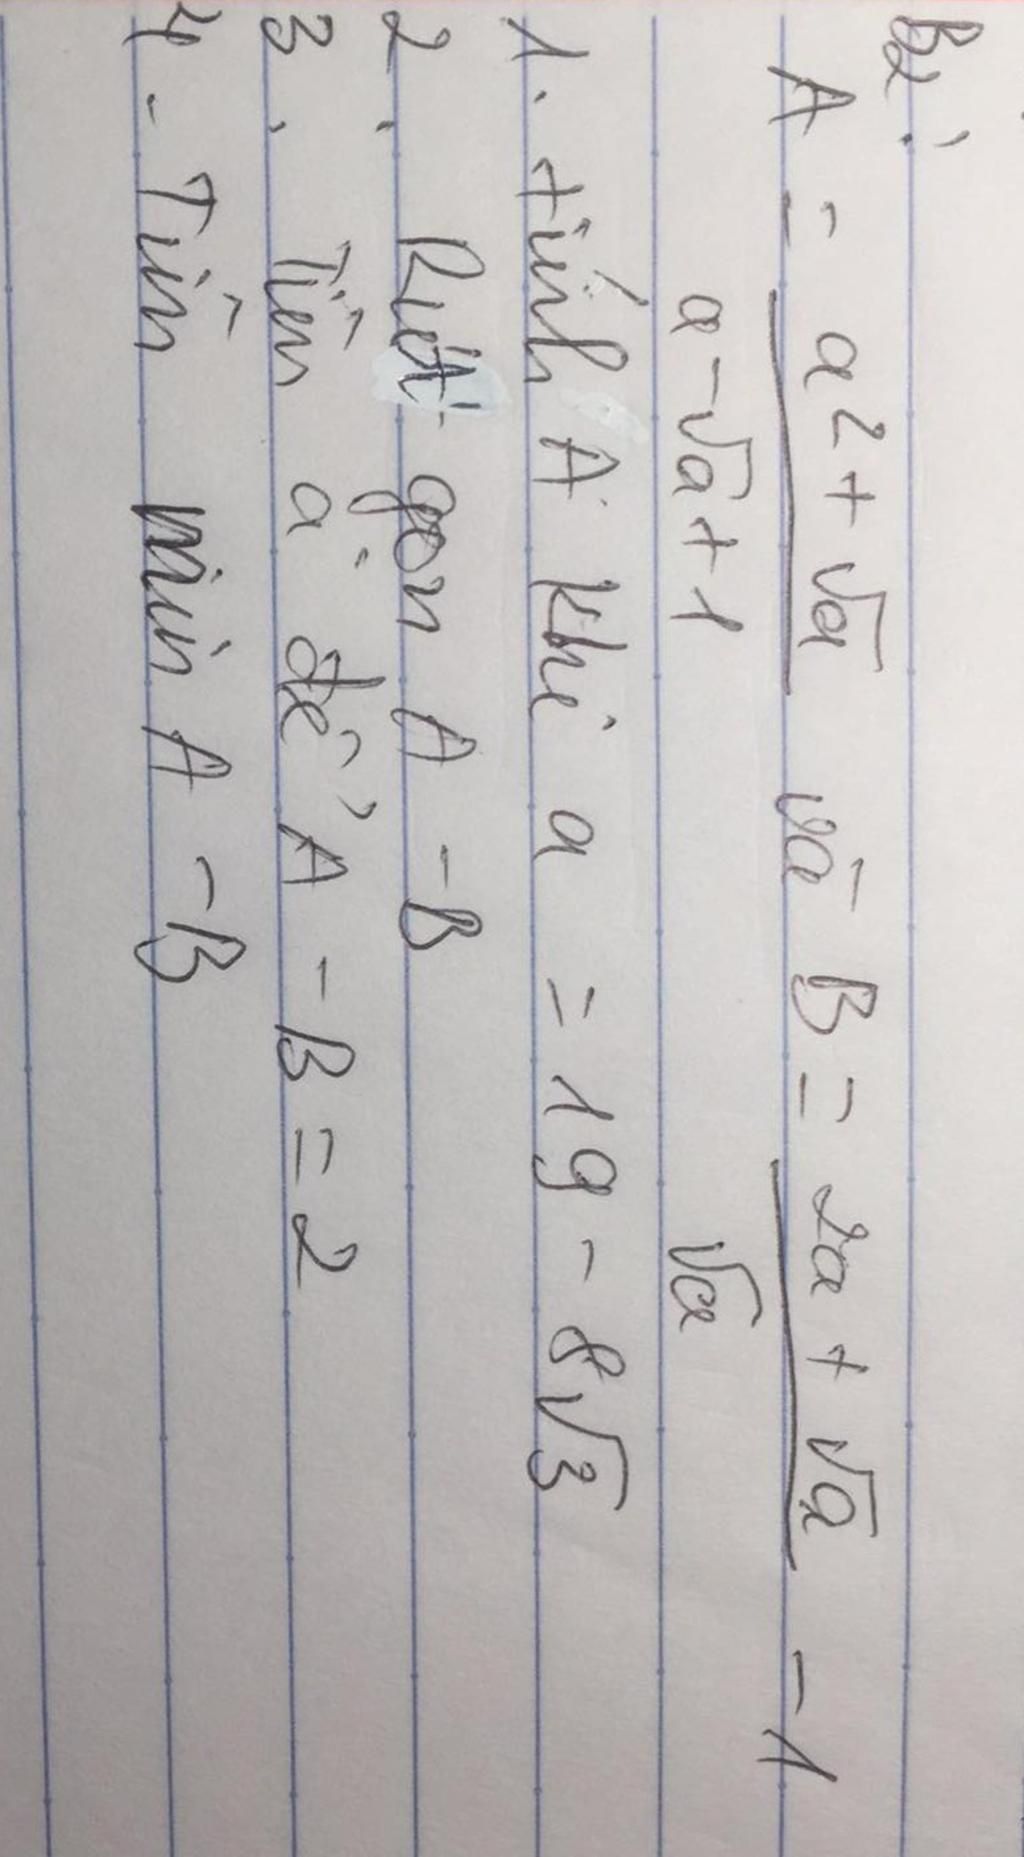 B2:
A = a² + √a / a - √a + 1 và B = 2a + √a / √a - 1
1. tính A khi a = 19 - 8√3
2. Rút gọn A - B
3. Tìm a để A - B = 2
4. Tìm min A - B